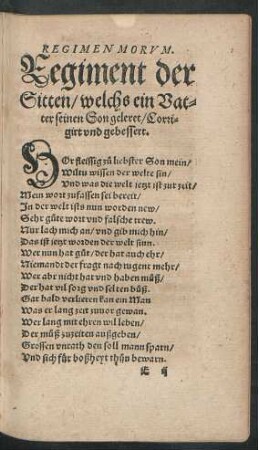 REGIMEN MORVM.
Regiment der
Sitten/ welchs ein Vat-
ter seinen Son geleret/ Corri-
girt vnd gebessert.
HOr fleissig zů liebster Son mein/
Wiltu wissen der welte sin/
Vnd was die welt jetzt ist zur zeit/
Mein wort zufassen sei bereit/
In der welt ists nun worden new/
Sehr gůte wort vnd falsche trew.
Nur lach mich an/ vnd gib mich hin/
Das ist jetzt worden der welt sinn.
Wer nun hat gůt/ der hat auch ehr/
Niemandt der fragt nach tugent mehr/
Wer abr nicht hat vnd haben můß/
Der hat vil sorg vnd selten bůß.
Gar bald verlieren kan ein Man
Was er lang zeit zuuor gewan.
Wer lang mit ehren wil leben/
Der můß zuzeiten außgeben/
Grossen vnrath den soll mann sparn/
Vnd sich für boßheyt thůn bewarn.
E ij